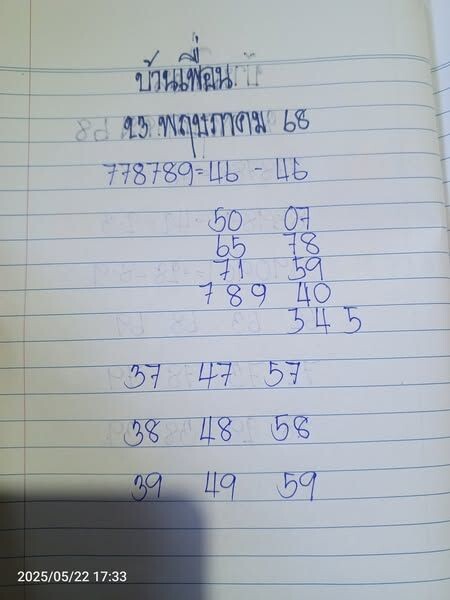 บ้านเพื่อน
23 พฤษภาคม 68
778789=46 - 46
50 07
65 78
71 59
789 40
345
37 47 57
38 48 58
39 49 59
2025/05/22 17:33